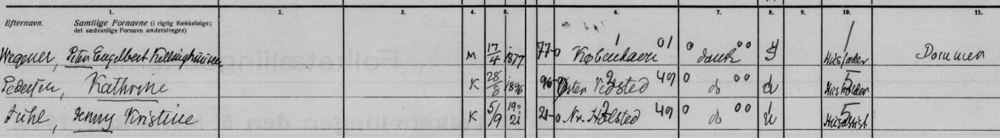 1. 2. 3. 4. 5. 6. 7. 8. 9. 10. 11.
Efternavn. Samtlige Fornavne (i rigtig Rækkefølge; det sædvanlige Fornavn understreges)
Wegener, Peter Engelbert M 17/4 1877 77-0 København 01 0 dansk 00 G Husfader Dommer
Pedersen, Kathrine K 28/8 1896 96-0 Holsted 49 0 do 00 5
Juhl, Jenny Kristine K 5/9 1921 21-0 Nr. Holsted 49 0 do 00 5